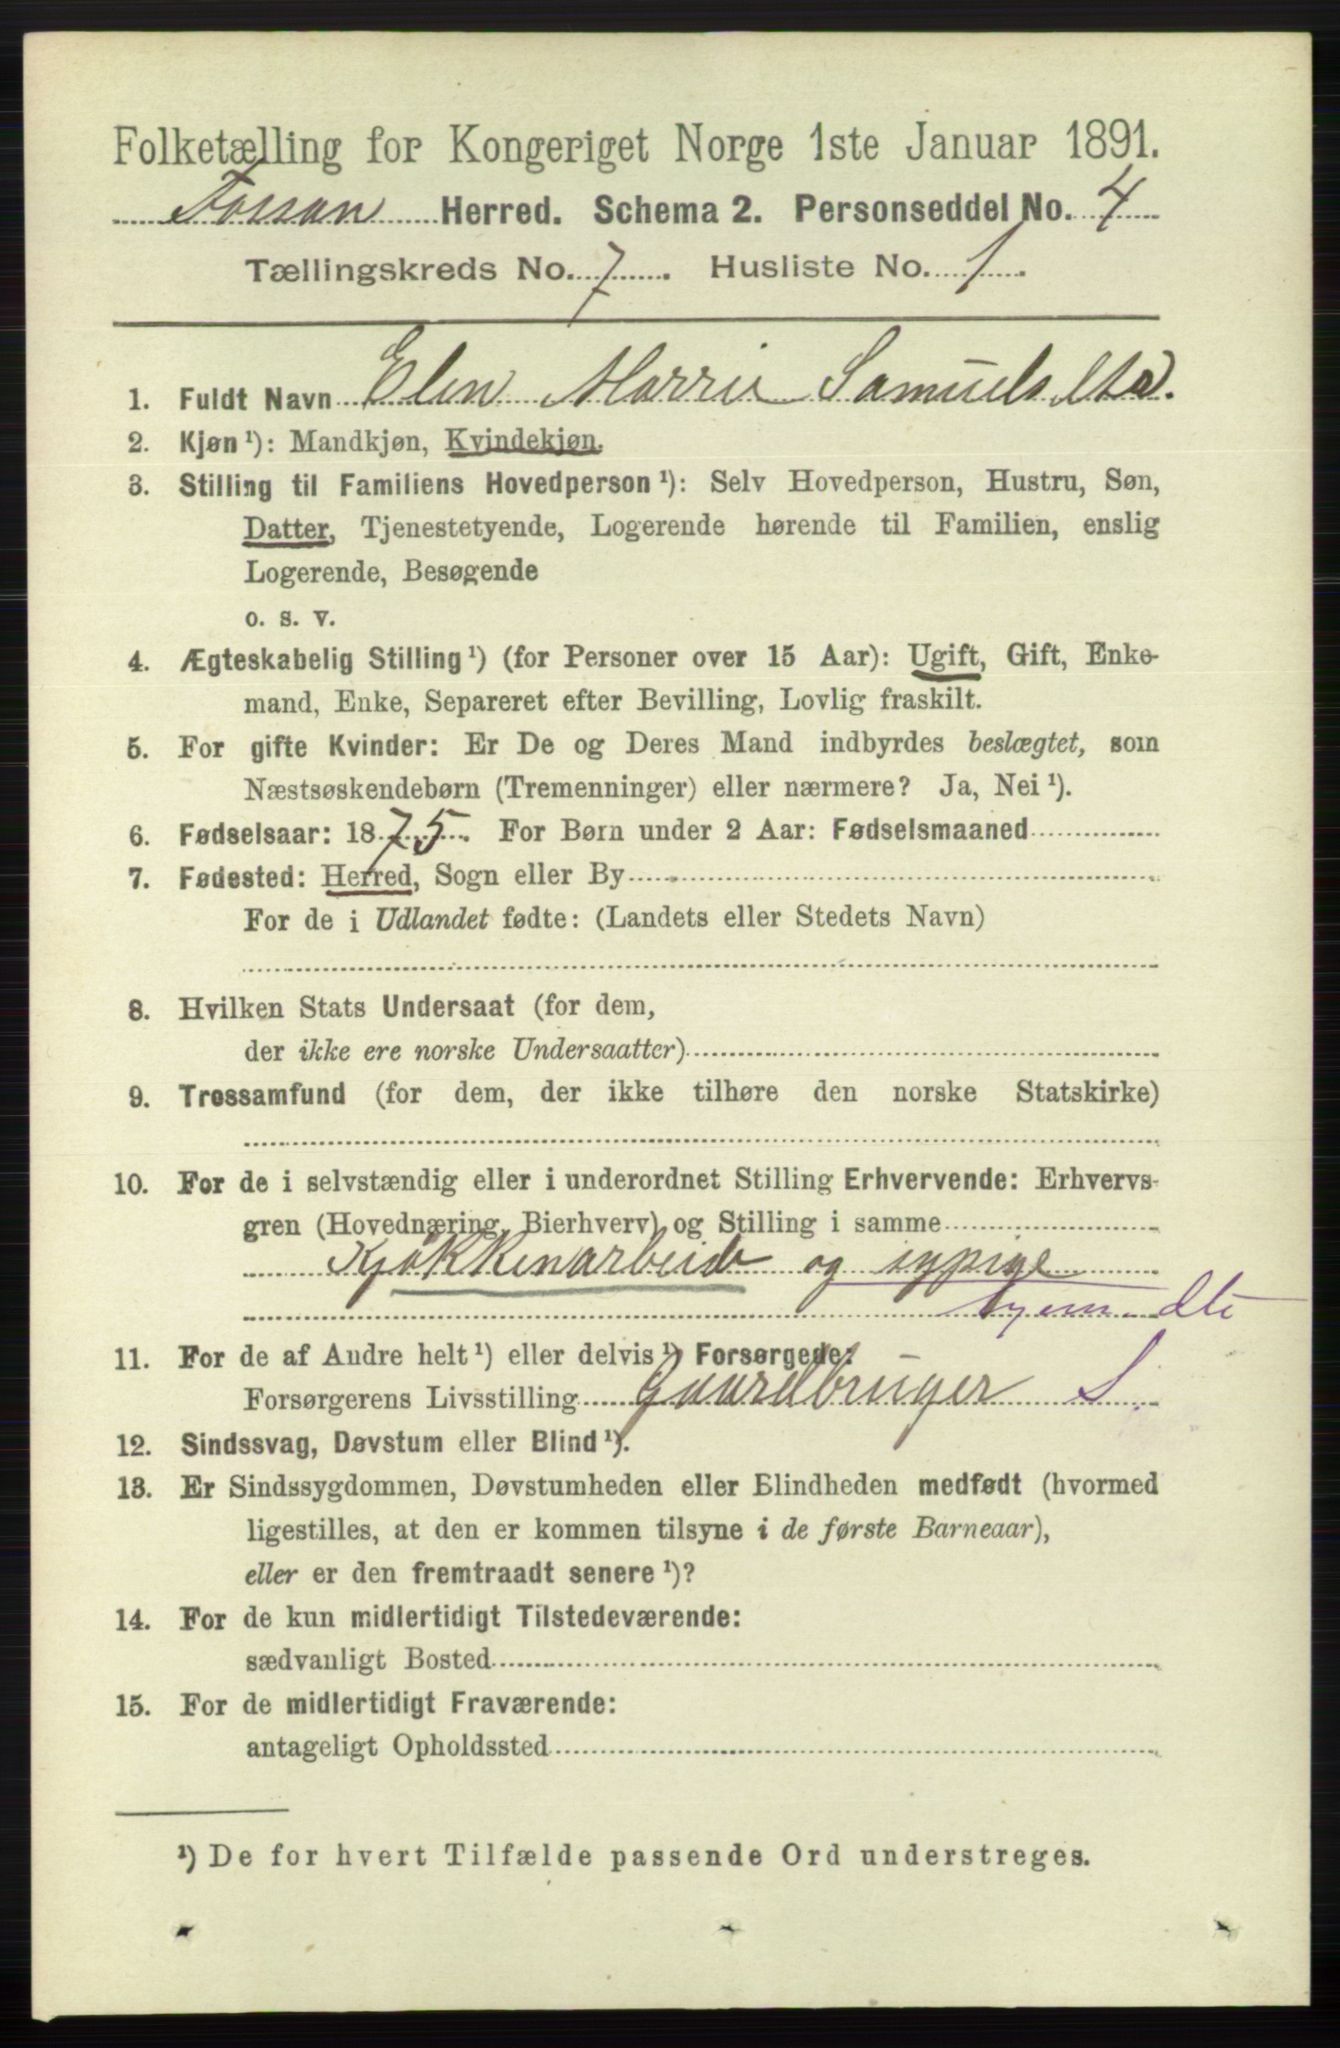 Folketælling for Kongeriget Norge 1ste Januar 1891.
Fossan Herred. Schema 2. Personseddel No. 4
Tællingskreds No. 7. Husliste No. 1.
1. Fuldt Navn Elen Marrie Samuelsdta.
2. Kjøn ¹): Mandkjøn, Kvindekjøn.
3. Stilling til Familiens Hovedperson ¹): Selv Hovedperson, Hustru, Søn,
Datter, Tjenestetyende, Logerende hørende til Familien, enslig
Logerende, Besøgende
o. s. v.
4. Ægteskabelig Stilling ¹) (for Personer over 15 Aar): Ugift, Gift, Enke-
mand, Enke, Separeret efter Bevilling, Lovlig fraskilt.
5. For gifte Kvinder: Er De og Deres Mand indbyrdes beslægtet, som
Næstsøskendebørn (Tremenninger) eller nærmere? Ja, Nei ¹).
6. Fødselsaar: 1875. For Børn under 2 Aar: Fødselsmaaned
7. Fødested: Herred, Sogn eller By
For de i Udlandet fødte: (Landets eller Stedets Navn)
8. Hvilken Stats Undersaat (for dem,
der ikke ere norske Undersaatter)
9. Trossamfund (for dem, der ikke tilhøre den norske Statskirke)
10. For de i selvstændig eller i underordnet Stilling Erhvervende: Erhvervs-
gren (Hovednæring, Bierhverv) og Stilling i samme
Kjøkkenarbeide og sypige
hjem. dtr
11. For de af Andre helt ¹) eller delvis ¹) Forsørgede:
Forsørgerens Livsstilling Gaardbruger S.
12. Sindssvag, Døvstum eller Blind ¹).
13. Er Sindssygdommen, Døvstumheden eller Blindheden medfødt (hvormed
ligestilles, at den er kommen tilsyne i de første Barneaar),
eller er den fremtraadt senere ¹)?
14. For de kun midlertidigt Tilstedeværende:
sædvanligt Bosted
15. For de midlertidigt Fraværende:
antageligt Opholdssted
¹) De for hvert Tilfælde passende Ord understreges.